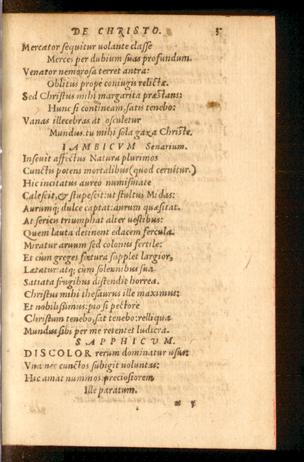 DE CHRISTO. 5
Mercator sequitur uolante classe
Merces per dubium suas profundum.
Venator nemorosa terret antra:
Oblitus prope coniugis relictæ.
Sed Christus mihi margarita præstans:
Hunc si contineam, satis tenebo:
Vanas illecebras at osculetur
Mundus. tu mihi sola gaza Christe.
IAMBICVM Senarium.
Inseuit affectus Natura plurimos
Cunctis potens mortalibus (quod cernitur.)
Hic incitatus aureo numismate
Calescit, & stupescit: ut stultus Midas:
Aurumq; dulce captat: aurum quæsitat.
At sericu triumphat alter uestibus:
Quem lauta detinent edacem fercula.
Miratur aruum sed colonus fertile:
Et cùm greges fœtura supplet largior,
Lætatur: atq; cùm solennibus sua
Satiata frugibus distendit horrea.
Christus mihi thesaurus ille maximus:
Et nobilissimus: pio si pectore
Christum tenebo, sat tenebo: relliqua
Mundus sibi per me retentet ludicra.
SAPPHICVM.
DISCOLOR rerum dominatur usus:
Vna nec cunctos subigit voluntas:
Hic amat nummos preciosiorem
Ille paratum.